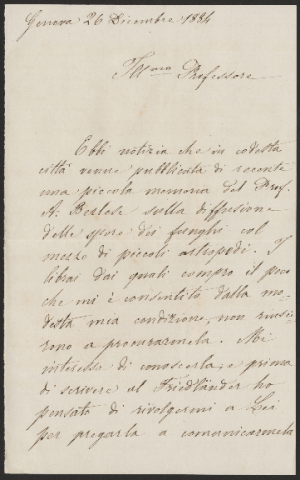 Genova 26 Dicembre 1884
Ill.mo Professore
Ebbi notizia che in codesta
città venne pubblicata di recente
una piccola memoria del Prof.
A. Berlese sulla diffusione
delle spore dei funghi col
mezzo di piccoli artropodi. I
librai dai quali compro il poco
che mi è consentito dalla mo-
desta mia condizione, non riusci-
rono a procurarmela. Mi
interessa di conoscerla, e prima
di scrivere al Friedländer ho
pensato di rivolgermi a Lei
per pregarla a comunicarmela